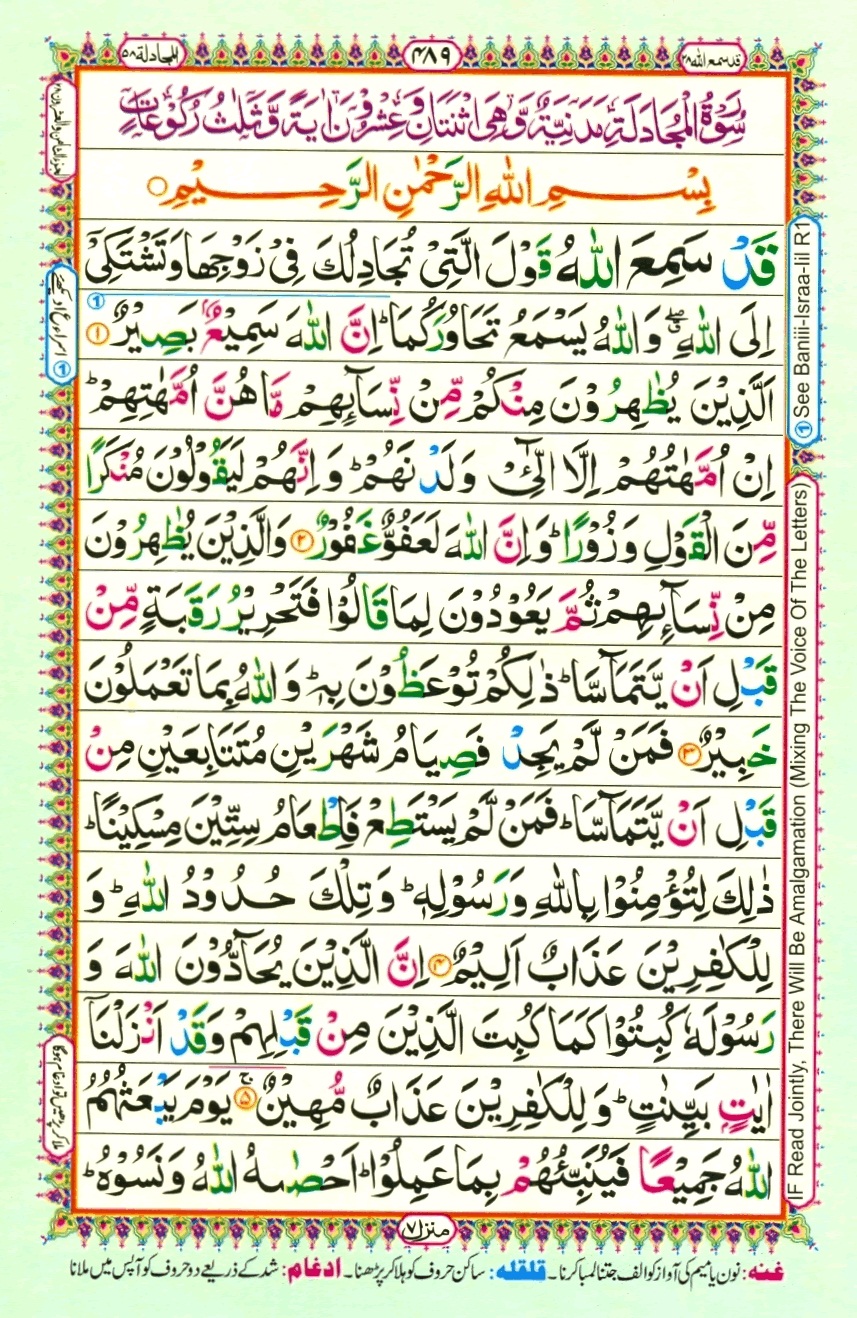 قد سمع الله ٢٨
٤٨٩
المجادلة ٥٨
سُوْرَةُ الْمُجَادَلَةِ مَدَنِيَّةٌ وَّهِيَ اثْنَتَانِ وَعِشْرُوْنَ اٰيَةً وَّثَلٰثُ رُكُوْعَاتٍ
بِسْمِ اللهِ الرَّحْمٰنِ الرَّحِيْمِ
قَدْ سَمِعَ اللّٰهُ قَوْلَ الَّتِیْ تُجَادِلُكَ فِیْ زَوْجِهَا وَتَشْتَكِیْۤ
اِلَی اللّٰهِ ۖۗ وَاللّٰهُ یَسْمَعُ تَحَاوُرَكُمَا ؕ اِنَّ اللّٰهَ سَمِیْعٌۢ بَصِیْرٌ ۱
اَلَّذِیْنَ یُظٰهِرُوْنَ مِنْكُمْ مِّنْ نِّسَآىِٕهِمْ مَّا هُنَّ اُمَّهٰتِهِمْ ؕ
اِنْ اُمَّهٰتُهُمْ اِلَّا الّٰٓـِٔیْ وَلَدْنَهُمْ ؕ وَاِنَّهُمْ لَیَقُوْلُوْنَ مُنْكَرًا
مِّنَ الْقَوْلِ وَزُوْرًا ؕ وَاِنَّ اللّٰهَ لَعَفُوٌّ غَفُوْرٌ ۲ وَالَّذِیْنَ یُظٰهِرُوْنَ
مِنْ نِّسَآىِٕهِمْ ثُمَّ یَعُوْدُوْنَ لِمَا قَالُوْا فَتَحْرِیْرُ رَقَبَةٍ مِّنْ
قَبْلِ اَنْ یَّتَمَآسَّا ؕ ذٰلِكُمْ تُوْعَظُوْنَ بِهٖ ؕ وَاللّٰهُ بِمَا تَعْمَلُوْنَ
خَبِیْرٌ ۳ فَمَنْ لَّمْ یَجِدْ فَصِیَامُ شَهْرَیْنِ مُتَتَابِعَیْنِ مِنْ
قَبْلِ اَنْ یَّتَمَآسَّا ؕ فَمَنْ لَّمْ یَسْتَطِعْ فَاِطْعَامُ سِتِّیْنَ مِسْكِیْنًا ؕ
ذٰلِكَ لِتُؤْمِنُوْا بِاللّٰهِ وَرَسُوْلِهٖ ؕ وَتِلْكَ حُدُوْدُ اللّٰهِ ؕ وَ
لِلْكٰفِرِیْنَ عَذَابٌ اَلِیْمٌ ۴ اِنَّ الَّذِیْنَ یُحَآدُّوْنَ اللّٰهَ وَ
رَسُوْلَهٗ كُبِتُوْا كَمَا كُبِتَ الَّذِیْنَ مِنْ قَبْلِهِمْ وَقَدْ اَنْزَلْنَاۤ
اٰیٰتٍۭ بَیِّنٰتٍ ؕ وَلِلْكٰفِرِیْنَ عَذَابٌ مُّهِیْنٌ ۵ۚ یَوْمَ یَبْعَثُهُمُ
اللّٰهُ جَمِیْعًا فَیُنَبِّئُهُمْ بِمَا عَمِلُوْا ؕ اَحْصٰىهُ اللّٰهُ وَنَسُوْهُ ؕ
① See Baniii-Israa-Iil R1
IF Read Jointly, There Will Be Amalgamation (Mixing The Voice Of The Letters)
ملا کر پڑھیں تو ادغام ہوگا
منزل ٧
غنه: نون یا میم کی آواز کو الف جتنا لمبا کرنا۔ قلقله: ساکن حروف کو ہلا کر پڑھنا۔ ادغام: شد کے ذریعے دو حروف کو آپس میں ملانا